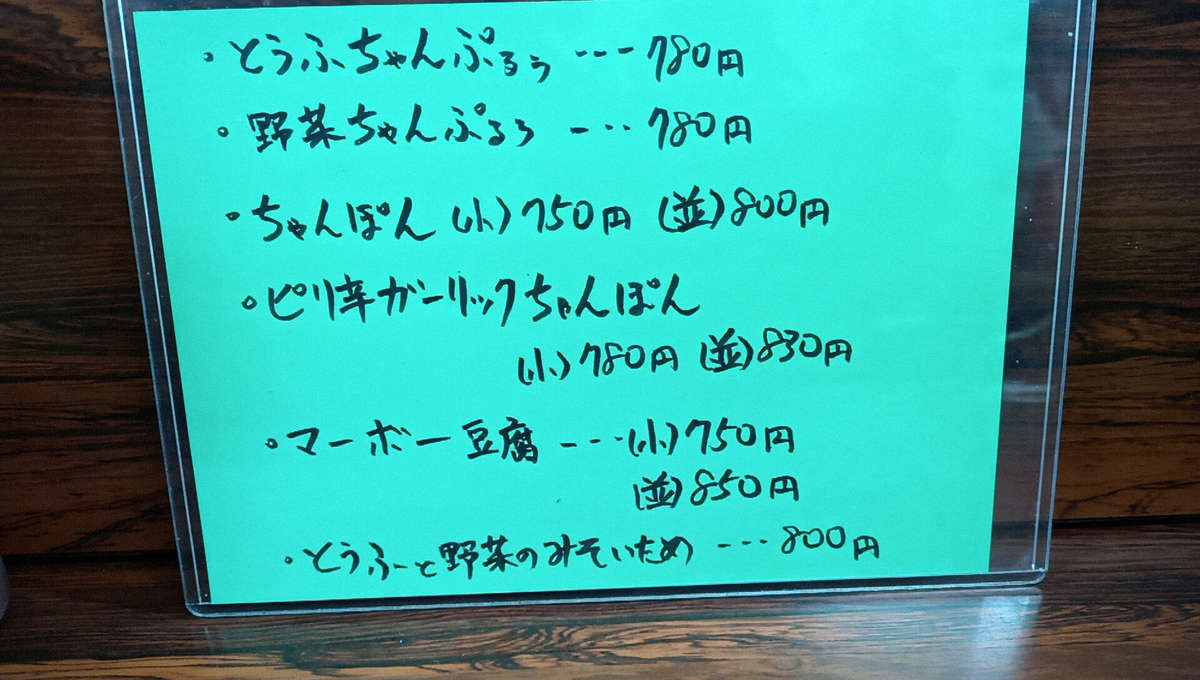 ・とうふちゃんぷるぅ ---780円
・野菜ちゃんぷるぅ ---780円
・ちゃんぽん (小)750円 (並)800円
・ピリ辛ガーリックちゃんぽん
(小)780円 (並)830円
・マーボー豆腐 ---(小)750円
(並)850円
・とうふーと野菜のみそいため ---800円